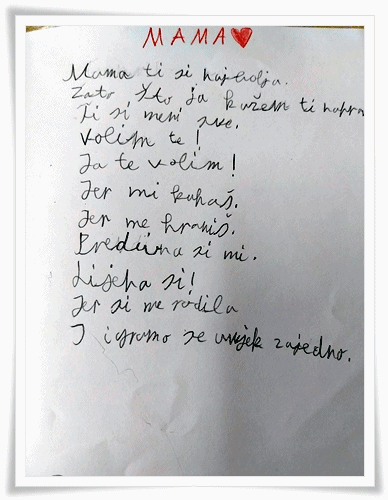 MAMA
Mama ti si najbolja.
Zato što ja kažem ti
Ti si meni sve.
Volim te!
Ja te volim!
Jer mi kuhaš.
Jer me hraniš.
si mi.
Lijepa si!
Jer si me rodila
I igramo se uvijek zajedno.